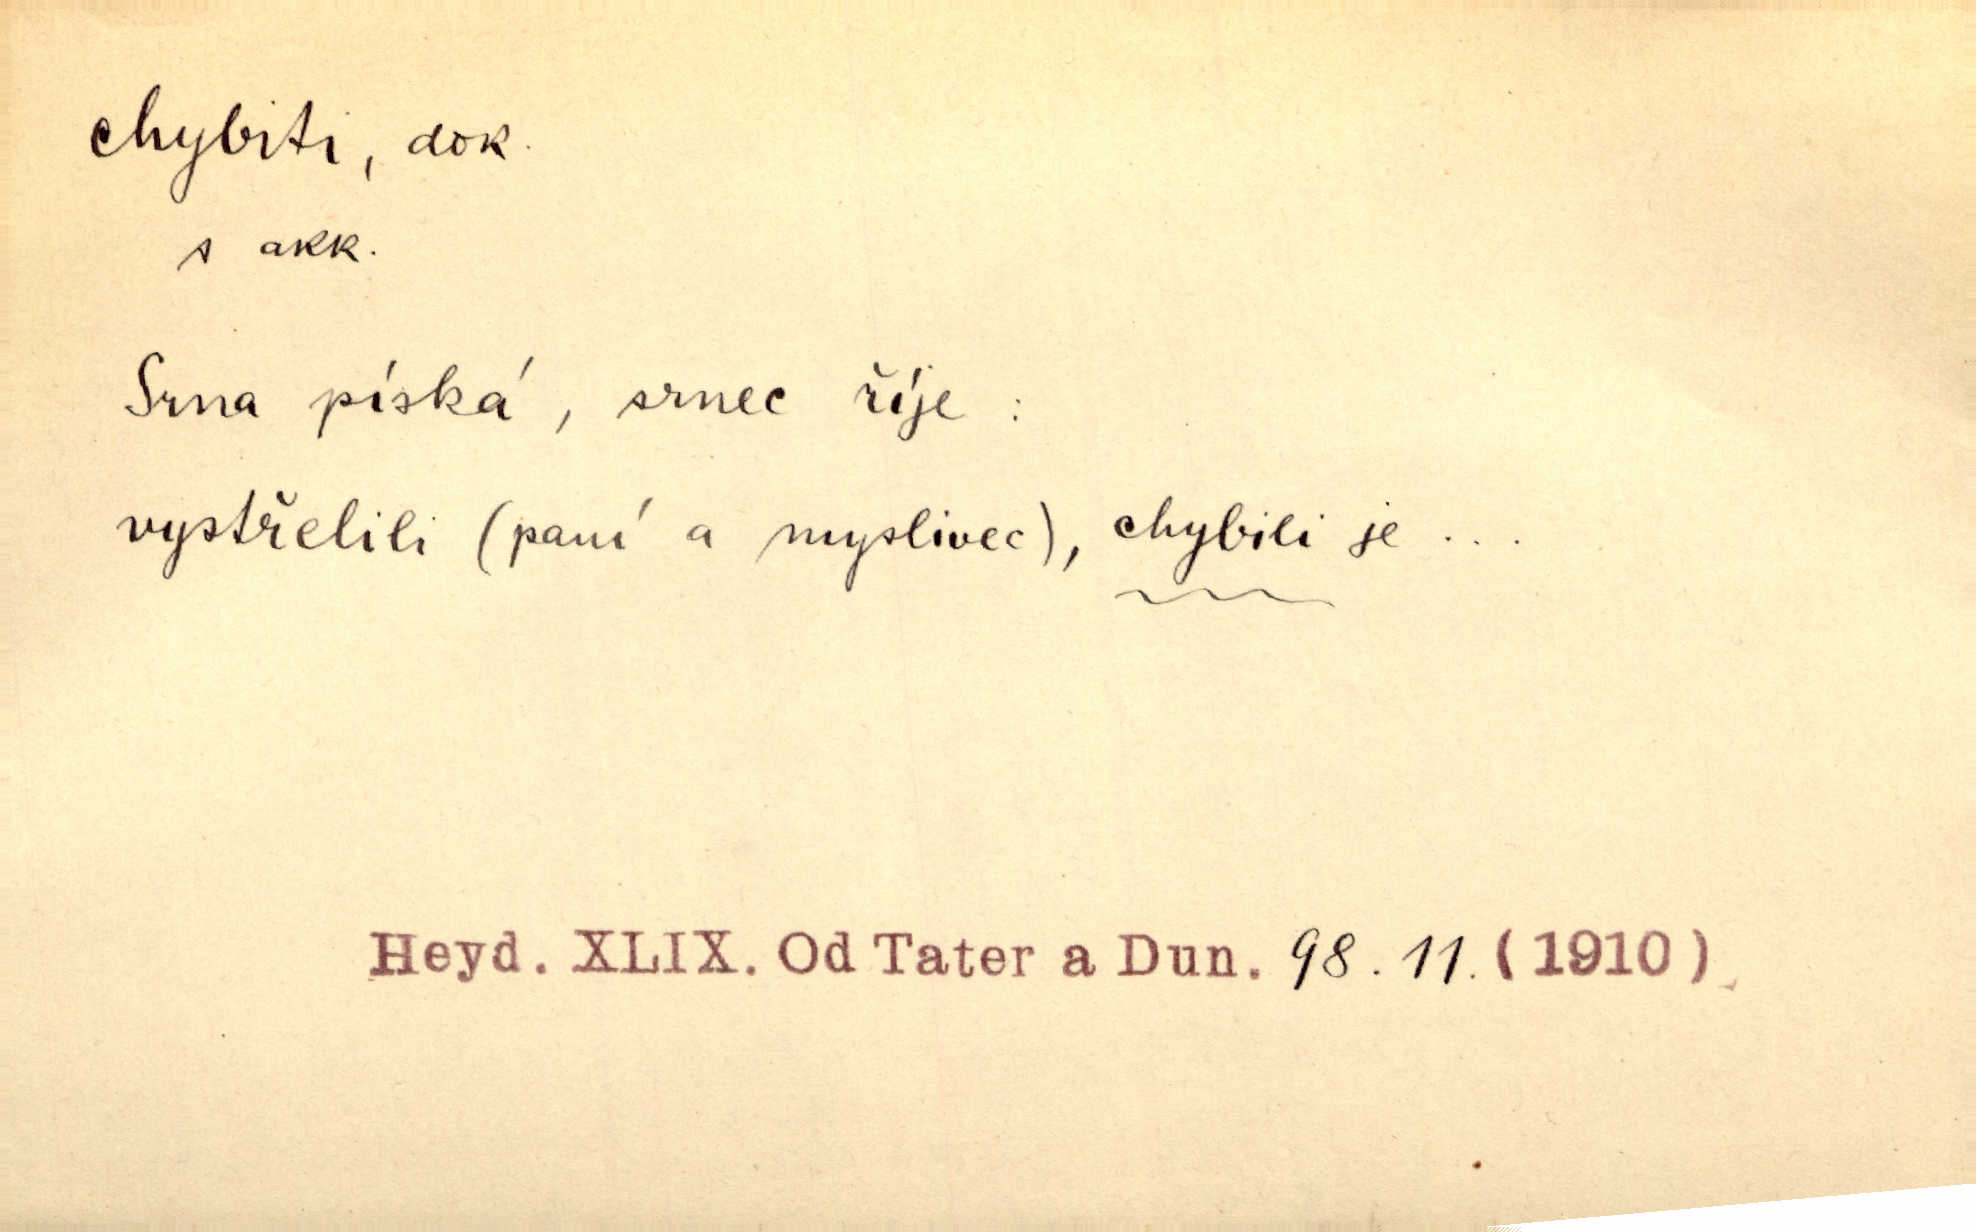 chybiti, dok.
s akk.
Srna píská, srnec říje :
vystřelili (paní a myslivec), chybili je ...
Heyd. XLIX. Od Tater a Dun. 98. 11. (1910).